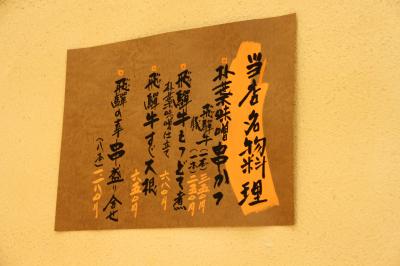 当店名物料理
朴葉味噌串かつ
飛騨牛(一本)三五〇円
豚(一本)二五〇円
飛騨牛もつとて煮
朴葉味噌仕立て
六八〇円
飛騨牛すじ大根
六五〇円
飛騨の幸串盛り合せ
(八本)一二八〇円